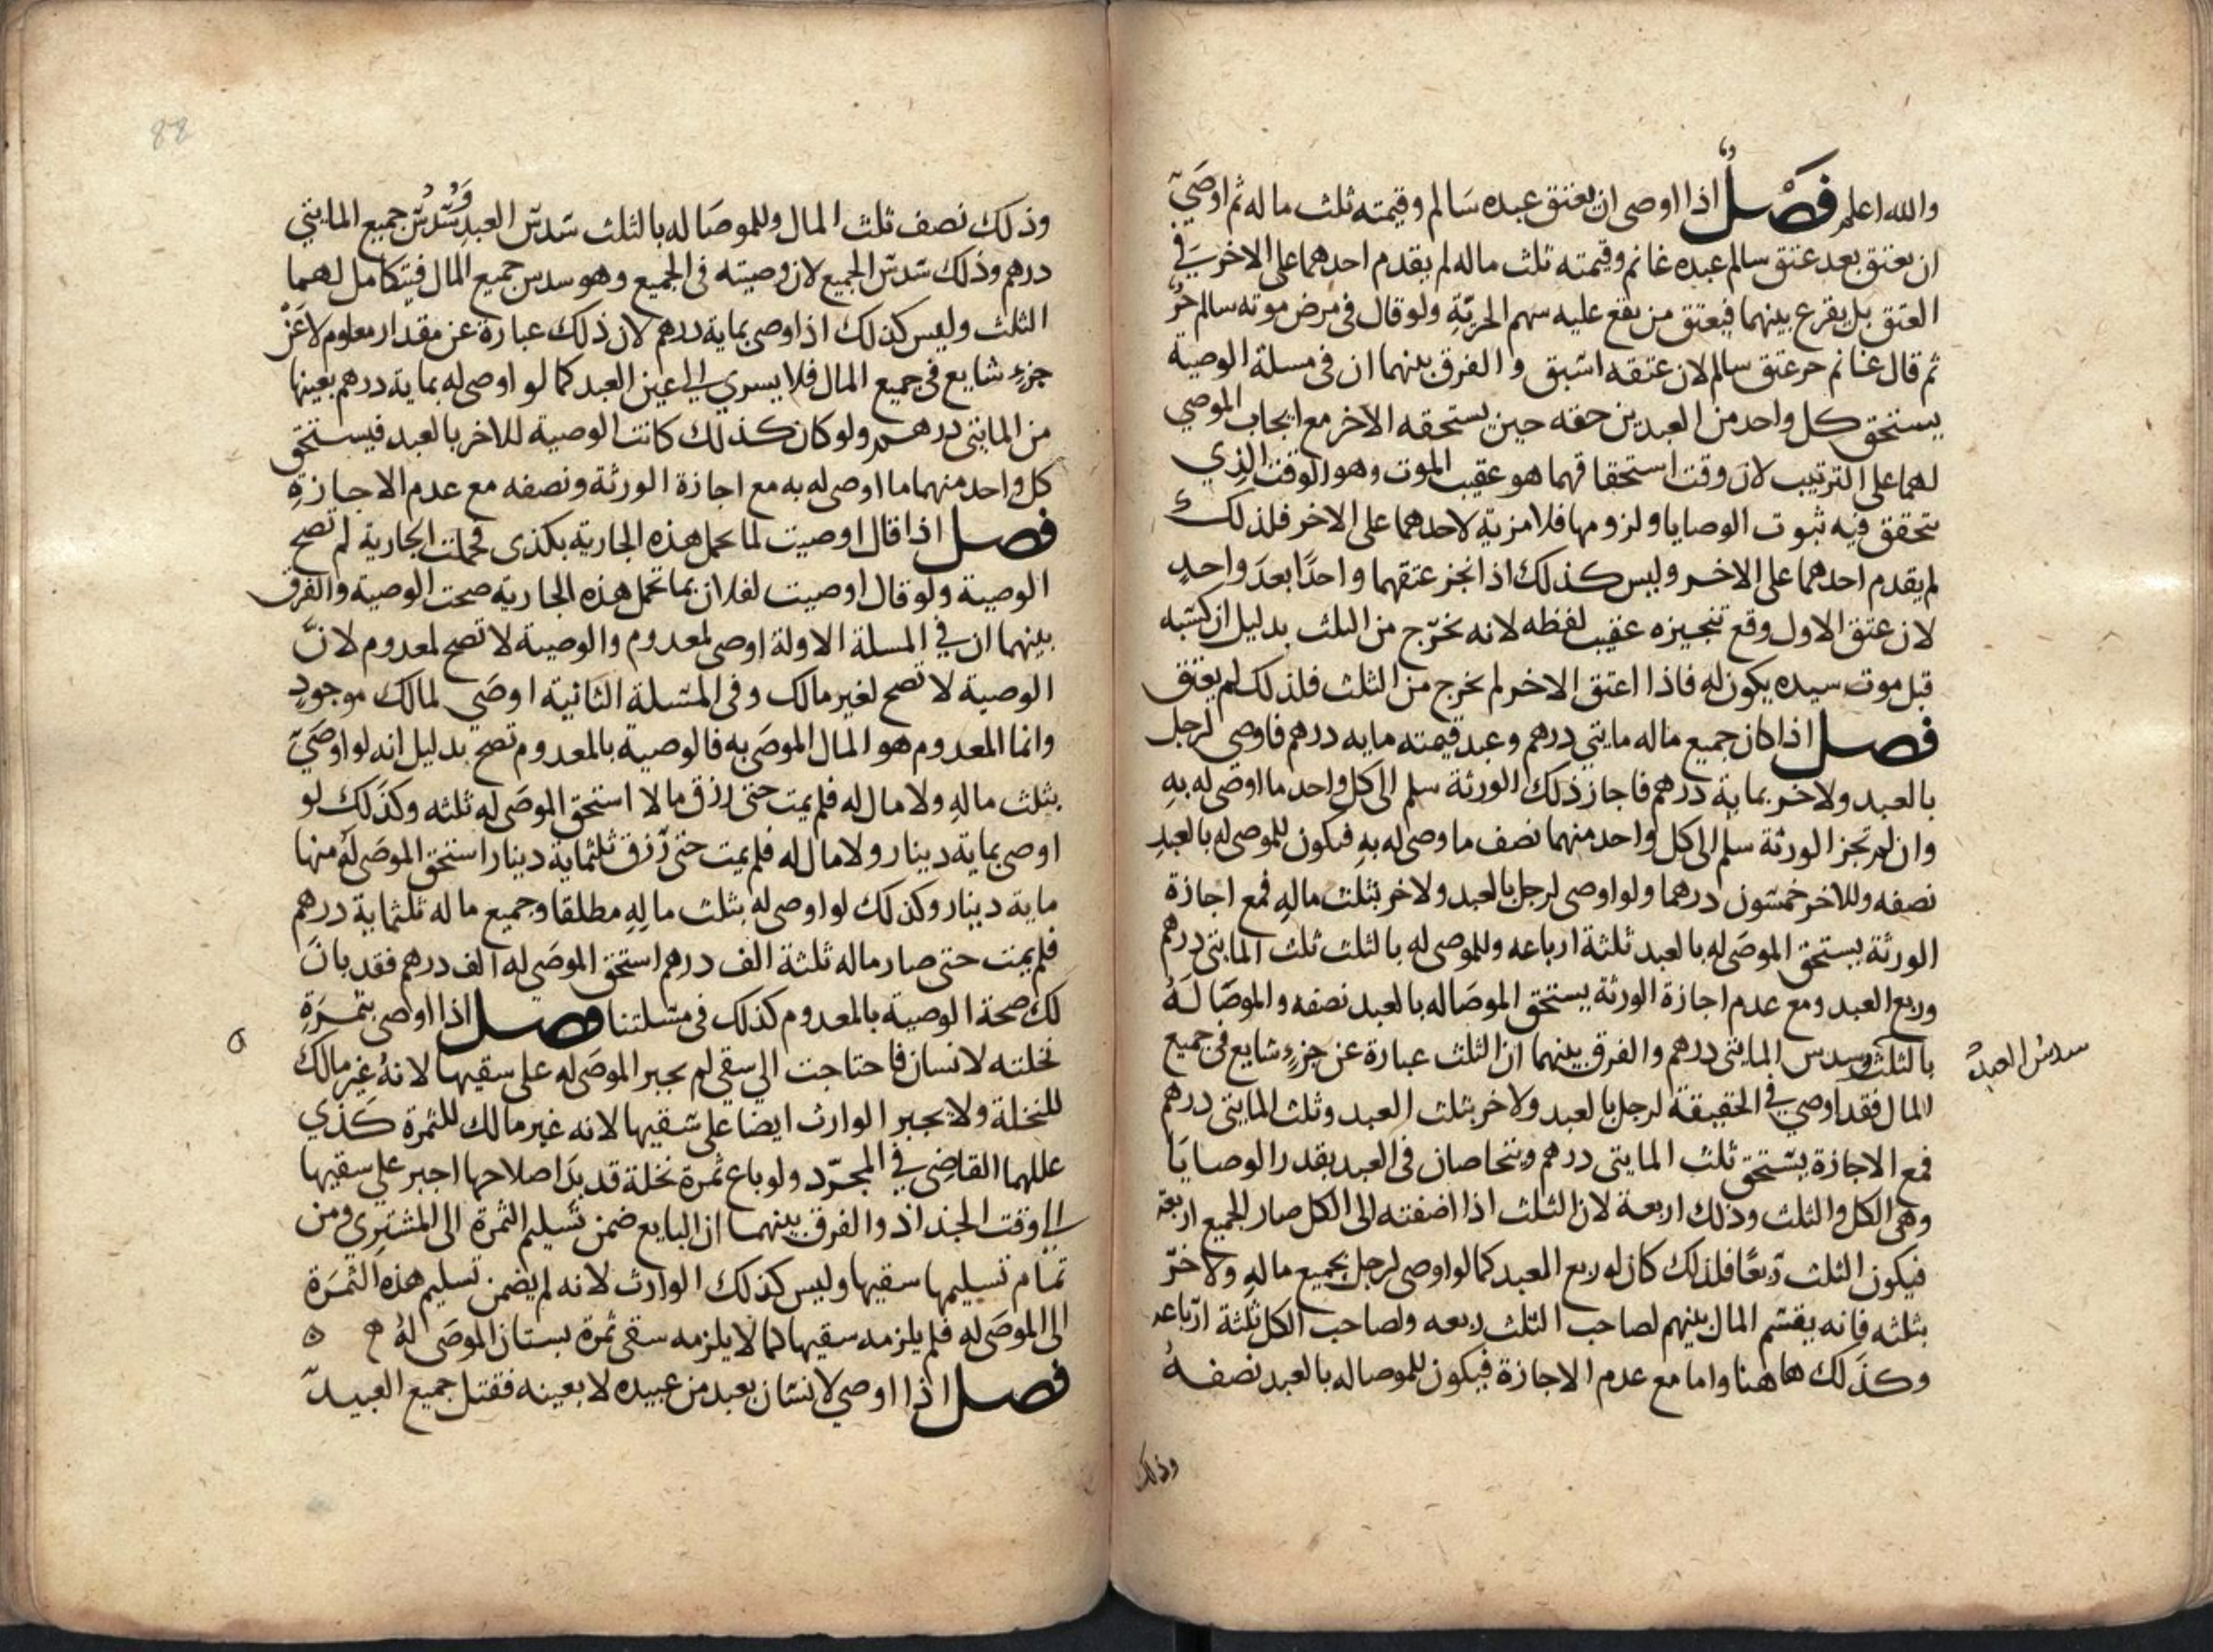 والله اعلم فَصْل اذا اوصى ان يعتق عبده سَالم وقيمته ثلث ماله ثم اوصَى
ان يعتق بعد عتق سالم عبده غانم وقيمته ثلث ماله لم يقدم احدهما على الاخر في
العتق بل يقرع بينهما فيعتق من يقع عليه سهم الحريّةِ ولو قال في مرض موته سالم حُرٌ
ثم قال غانم حر عتق سالم لان عتقه اسبق والفرق بينهما ان في مسلة الوصية
يستحق كل واحد من العبدين حقه حين يستحقه الاخر مع ايجاب الموصي
لهما على الترتيب لان وقت استحقاقهما هو عقيب الموت وهو الوقت الذِي
تحقق فيه ثبوت الوصايا ولزومها فلا مزية لاحدهما على الاخر فلذلك
لم يقدم احدهما على الاخر وليس كذلك اذا نجز عتقهما واحدًا بعدَ واحدٍ
لان عتق الاول وقع تنجيزه عقيب لفظه لانه يخرّج من الثلث بدليل ان كسبه
قبل موت سيده يكون له فاذا اعتق الاخر لم يخرج من الثلث فلذلك لم يعتق
فصل اذا كان جميع ماله مايتي درهم وعبد قيمته مايه درهم فاوصى لرجل
بالعبد ولاخر بماية درهم فاجاز ذلك الورثة سلم الى كل واحد ما اوصى له بهِ
وان لم تجز الورثة سلم الى كل واحد منهما نصف ما وصى له بهِ فيكون للموصى له بالعبدِ
نصفه وللاخر خمسُون درهما ولو اوصى لرجل بالعبد ولاخر بثلث مالهِ فمع اجازة
الورثة يستحق الموصَى له بالعبد ثلثة ارباعه وللموصى له بالثلث ثلث المايتى درهم
وربع العبد ومع عدم اجازة الورثة يستحق الموصَا له بالعبد نصفه والموصَا لَهُ
بالثلث وسدس المايتى درهم والفرق بينهما ان الثلث عبارة عن جزءٍ شايع في جميع
سدس العبد
المال فقد اوصي في الحقيقة لرجل بالعبد ولاخر بثلث العبد وثلث المايتى درهم
فمع الاجازة يستحق ثلث المايتى درهم ويتحاصان في العبد بقدر الوصايَا
وهي الكل والثلث وذلك اربعة لان الثلث اذا اضفته الى الكل صار الجميع اربعة
فيكون الثلث رُبعًا فلذلك كان له ربع العبد كما لو اوصى لرجل بجميع مالهِ ولاخرّ
بثلثه فانه يقسّم المال بينهم لصاحب الثلث ربعه ولصاحب الكل ثلثة ارباعه
وكذَلك هاهنا واما مع عدم الاجازة فيكون للموصا له بالعبد نصفهُ
وذلك
88
وذلك نصف ثلث المال وللموصَا له بالثلث سُدسّ العبدِ وَسُدُسّ جميع المايتي
درهم وذلك سُدسّ الجميع لان وصيته في الجميع وهو سدس جميع المال فيتكامل لهما
الثلث وليس كذلك اذا وصى بماية درهم لان ذلك عبارة عن مقدار معلوم لا عَنْ
جزءٍ شايع في جميع المال فلا يسري الى عين العبد كما لو اوصى له بماية درهم بعينها
من المايتى درهم ولو كان كذلك كانت الوصية للاخر بالعبد فيستحق
كل واحد منهما ما اوصى له به مع اجازة الورثة ونصفه مع عدم الاجازةِ
فصل اذا قال اوصيت لما تحمل هذه الجارية بكذى فحملت الجارية لم تصح
الوصية ولو قال اوصيت لفلان بما تحمل هذه الجارية صحت الوصية والفرق
بينهما ان في المسلة الاولة اوصى لمعدوم والوصية لا تصح لمعدوم لانّ
الوصية لا تصح لغير مالك وفي المسَلة الثانية اوصَي لمالك موجودٍ
وانما المعدوم هو المال الموصَى به فالوصية بالمعدوم تصح بدليل انه لو اوصَى
بثلث مالهِ ولا مال له فلم يمت حتى رزق مالا استحق الموصَى له ثلثه وكذَلك لو
اوصى بماية دينار ولا مال له فلم يمت حتى رُزق ثلثماية دينار استحق الموصَى لهُ منها
ماية دينار وكذلك لو اوصى له بثلث مالهِ مطلقا وجميع ماله ثلثماية درهم
فلم يمت حتى صار ماله ثلثة الف درهم استحق الموصَى له الف درهم فقد بانَ
لك صحة الوصية بالمعدوم كذلك في مسَلتنا فصل اذا اوصى بثمرَةِ
نخلته لانسان فاحتاجت الى سقي لم يجبر الموصَى له على سقيها لانهُ غير مالك
للنخلة ولا يجبر الوارث ايضا على سَقيها لانه غير مالك للثمرة كَذي
عللهما القاضِى في المجرّد ولو باع ثمرة نخلة قد بدَا صلاحها اجبر على سقيها
الى وقت الجذاذ والفرق بينهما ان البايع ضمن تسليم الثمرة الى المشترِي ومن
تمام تسليمها سقيها وليس كذلك الوارث لانه لم يضمن تسليم هذه الثمَرَة
الى الموصَى له فلم يلزمه سقيها كما لا يلزمه سقي ثمرة بستان الموصَى لهُ
فصل اذا اوصي لانسَان بعبد من عبيده لا بعينه فقتل جميع العبيد